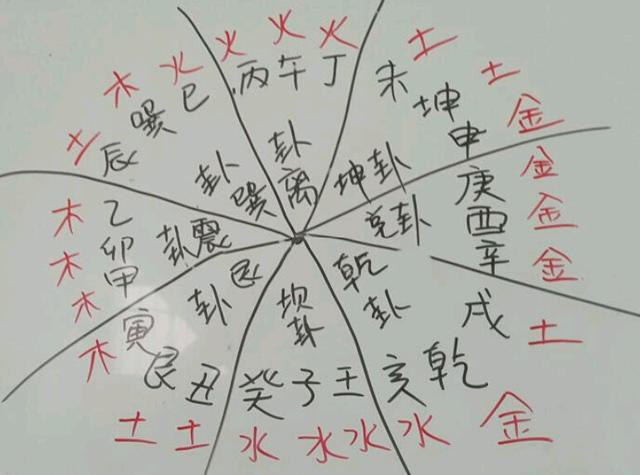 火火火
丙午丁
离卦
土土金
未坤申
坤卦
金金金
庚酉辛
兑卦
土金水
戌乾亥
乾卦
水水水
壬子癸
坎卦
土土木
丑艮寅
艮卦
木木木
甲卯乙
震卦
土木火
辰巽巳
巽卦